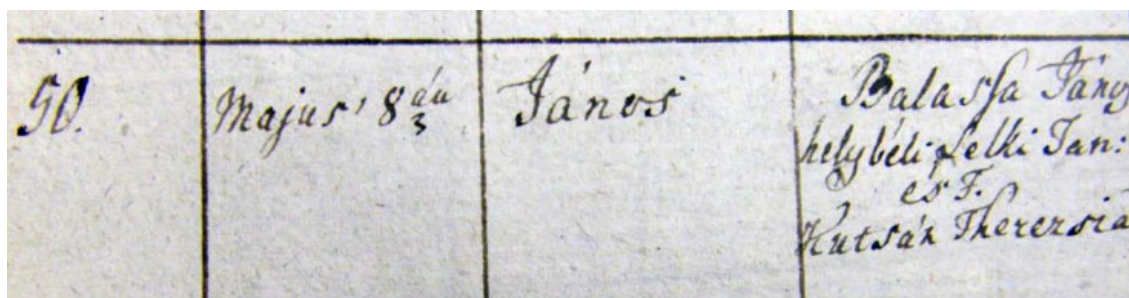 50.
Majus' 8 án
3
János
Balassa János
helybéli Lelki Tan:
es F.
Kutsán Therezsia